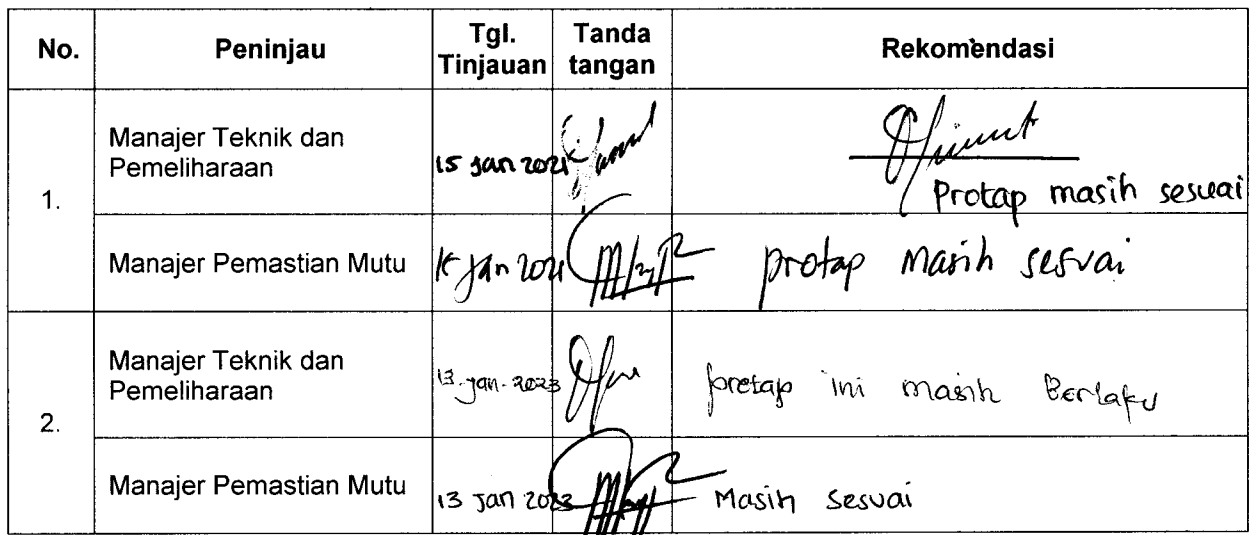 No. Peninjau Tgl. Tinjauan Tanda tangan Rekomendasi
1.
Manajer Teknik dan Pemeliharaan 15 Jan 2021
Protap masih sesuai
Manajer Pemastian Mutu Jan 2021 protap masih sesuai
2.
Manajer Teknik dan Pemeliharaan 13-jan-2023 protap ini masih Berlaku
Manajer Pemastian Mutu 13 Jan 2023 Masih sesuai